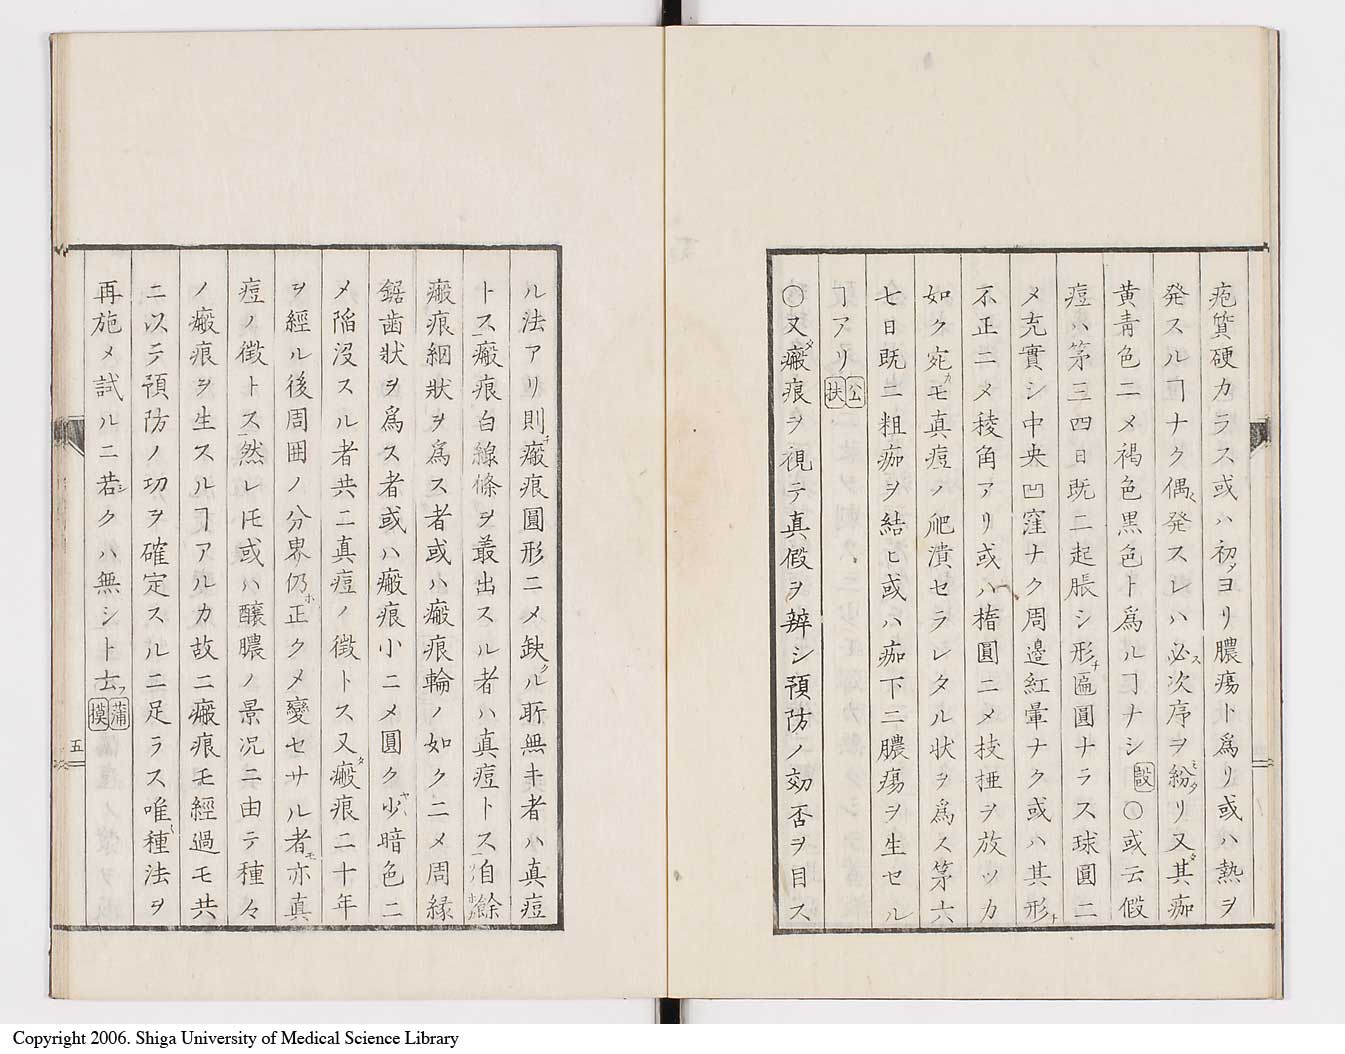 疱質硬カラス或ハ初ヨリ膿瘍ト爲リ或ハ熱ヲ
発スルヿナク偶発スレハ必次序ヲ紛リ又其痂
黄青色ニメ褐色黒色ト爲ルヿナシ㱿〇或云假
痘ハ第三四日既ニ起脹シ形匾圓ナラス球圓ニ
メ充實シ中央凹窪ナク周邉紅暈ナク或ハ其形
不正ニメ稜角アリ或ハ楕圓ニメ枝極ヲ放ツカ
如ク宛モ真痘ノ爬潰セラレタル状ヲ爲ス第六
七日既ニ粗痂ヲ結ヒ或ハ痂下ニ膿瘍ヲ生セル
ヿアリ公扶
〇又瘢痕ヲ視テ真假ヲ辨シ預防ノ効否ヲ目ス
ル法アリ則瘢痕圓形ニメ缺ル所無キ者ハ真痘
トス瘢痕白線條ヲ叢出スル者ハ真痘トス自餘
瘢痕絪狀ヲ爲ス者或ハ瘢痕輪ノ如クニメ周縁
鋸歯狀ヲ爲ス者或ハ瘢痕小ニメ圓ク少暗色ニ
メ陥沒スル者共ニ真痘ノ徴トス又瘢痕二十年
ヲ經ル後周囲ノ分界仍正クメ變セサル者亦真
痘ノ徴トス然レ𪜈或ハ釀膿ノ景況ニ由テ種々
ノ瘢痕ヲ生スルヿアルカ故ニ瘢痕モ經過モ共
ニ以テ預防ノ功ヲ確定スルニ足ラス唯種法ヲ
再施メ試ルニ若クハ無シト云蒲摸
五
Copyright 2006. Shiga University of Medical Science Library